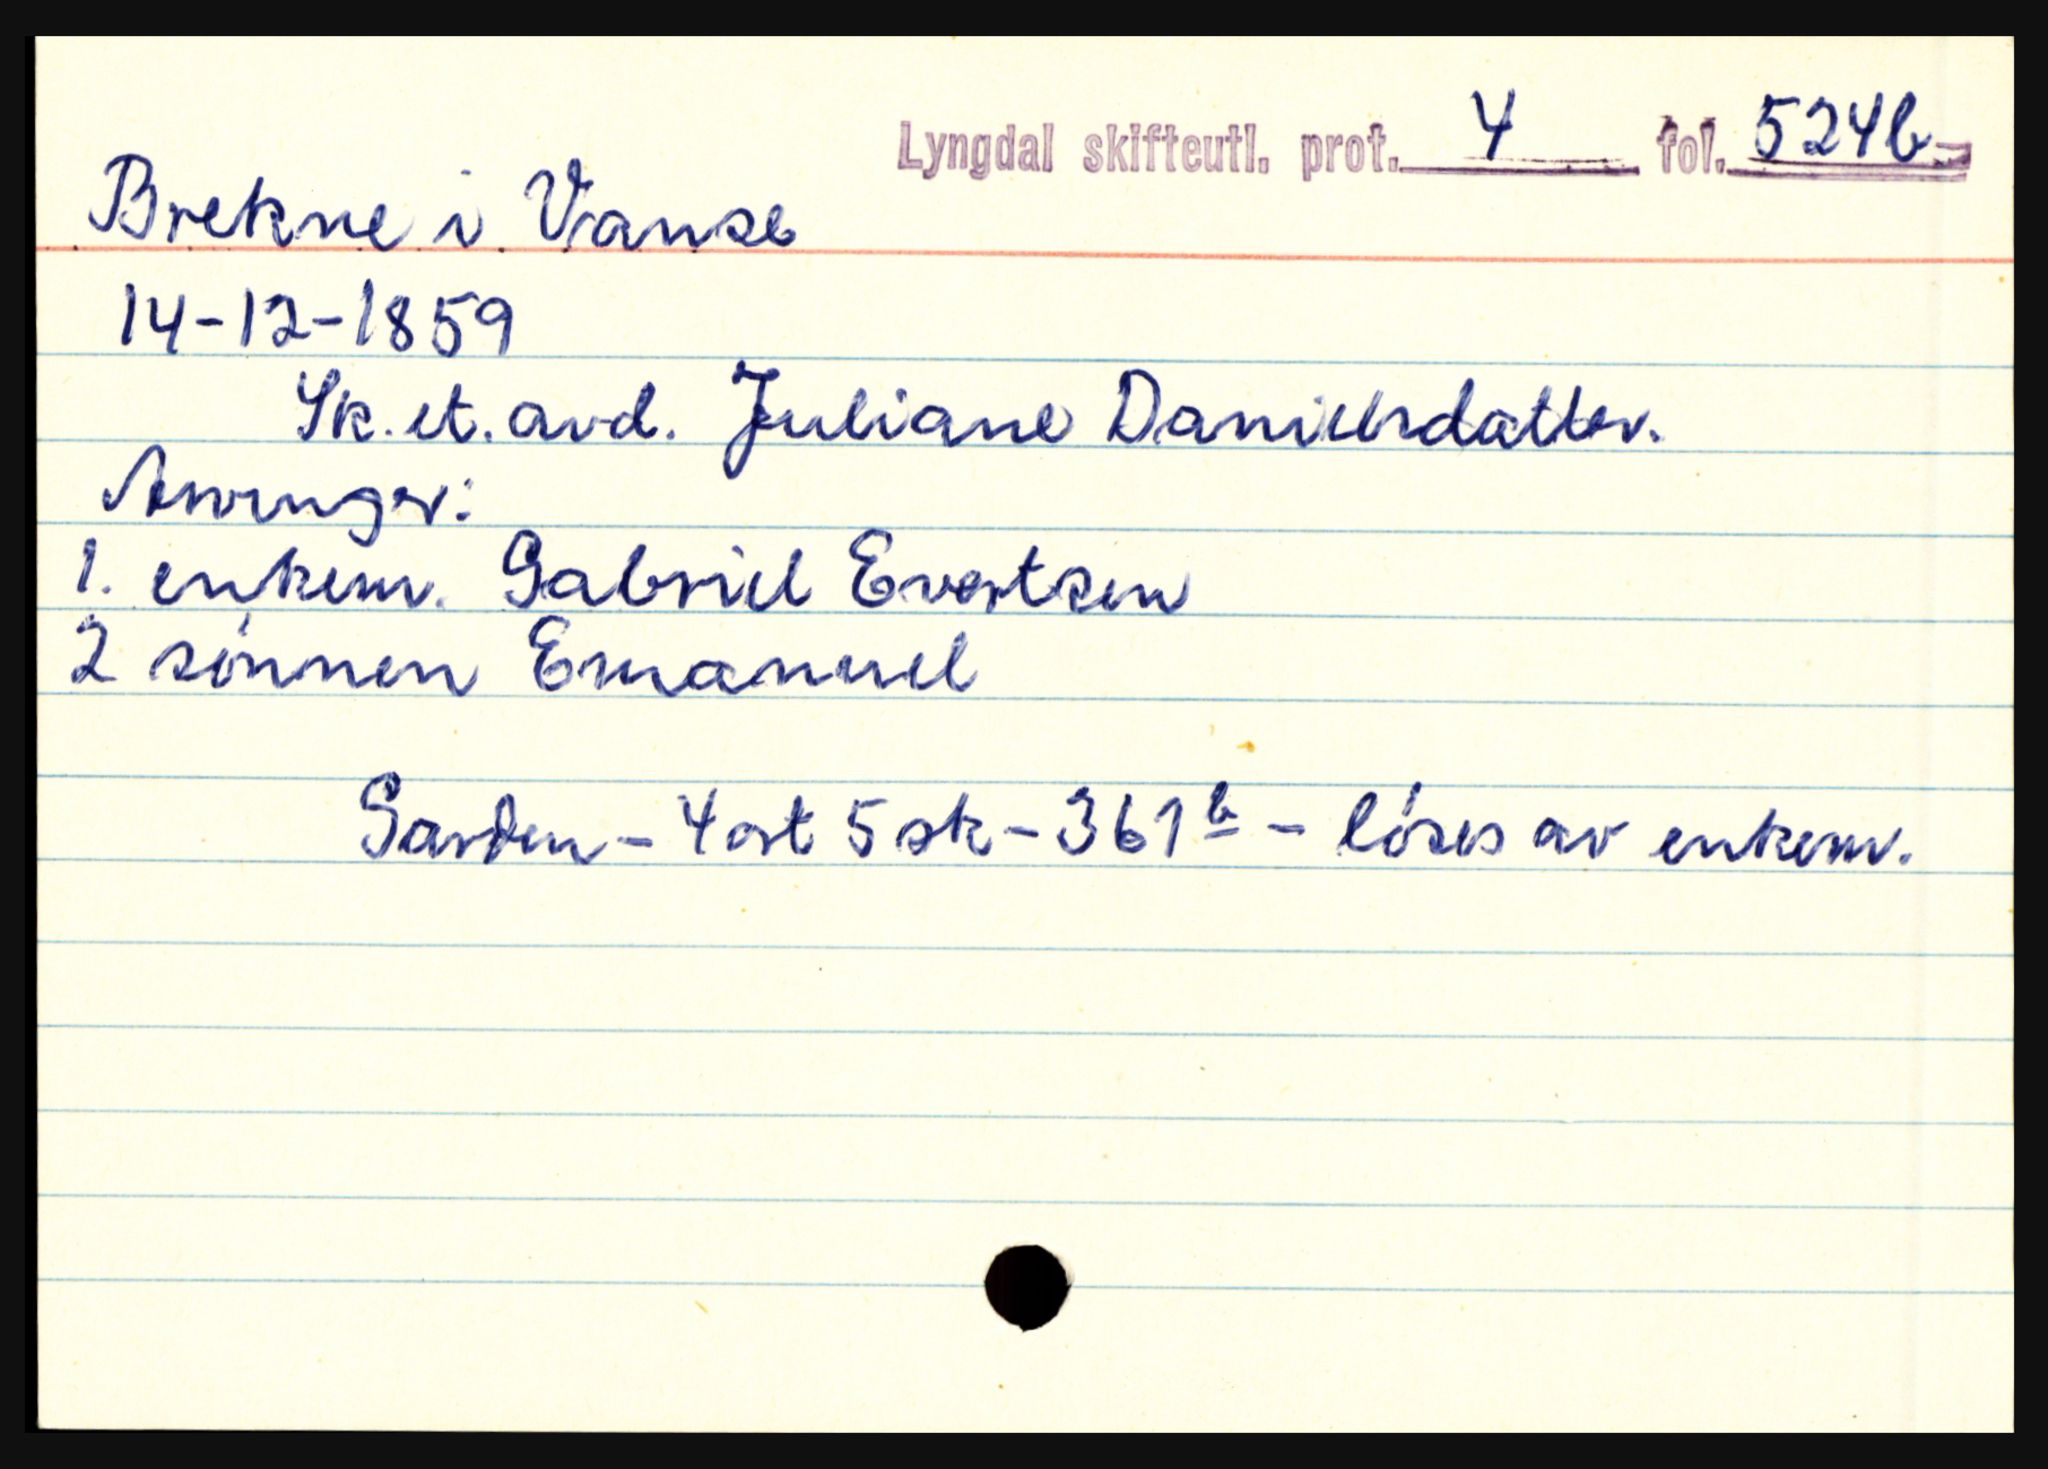 Lyngdal skifteutl. prot. 4 fol. 524b
Brekne i Vanse
14-12-1859
Sk. et. avd. Juliane Danielsdatter.
Arvinger:
1. enkem. Gabriel Evertsen
2 sónnen Emanuel
Garden - 4 ort 5 sk - 361 b - lóses av enkem.